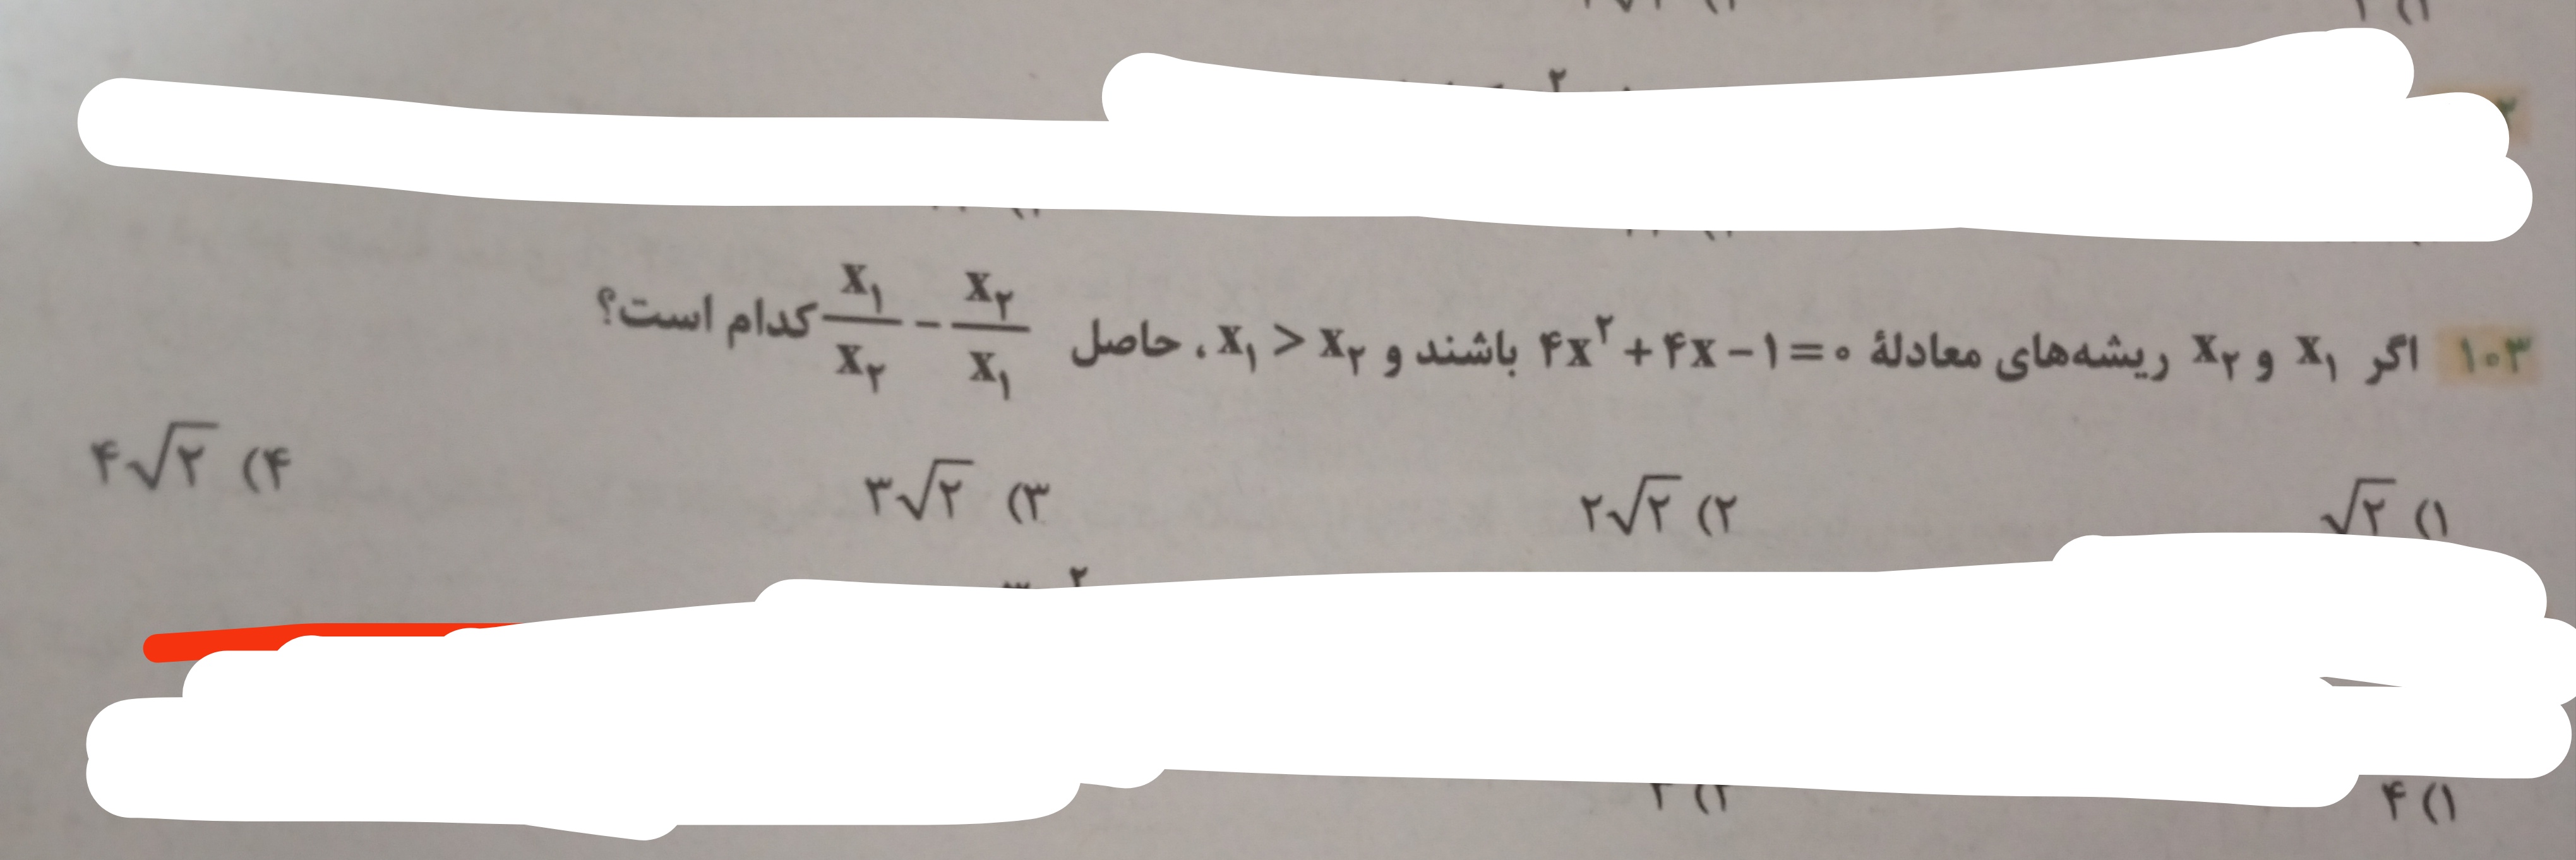 ۱۰۳ اگر x₁ و x₂ ریشه‌های معادلهٔ ۴x² + ۴x − ۱ = ۰ باشند و x₁ > x₂ ، حاصل x₁/x₂ − x₂/x₁ کدام است؟
۱) √۲ ۲) ۲√۲ ۳) ۳√۲ ۴) ۴√۲
۱) ۴